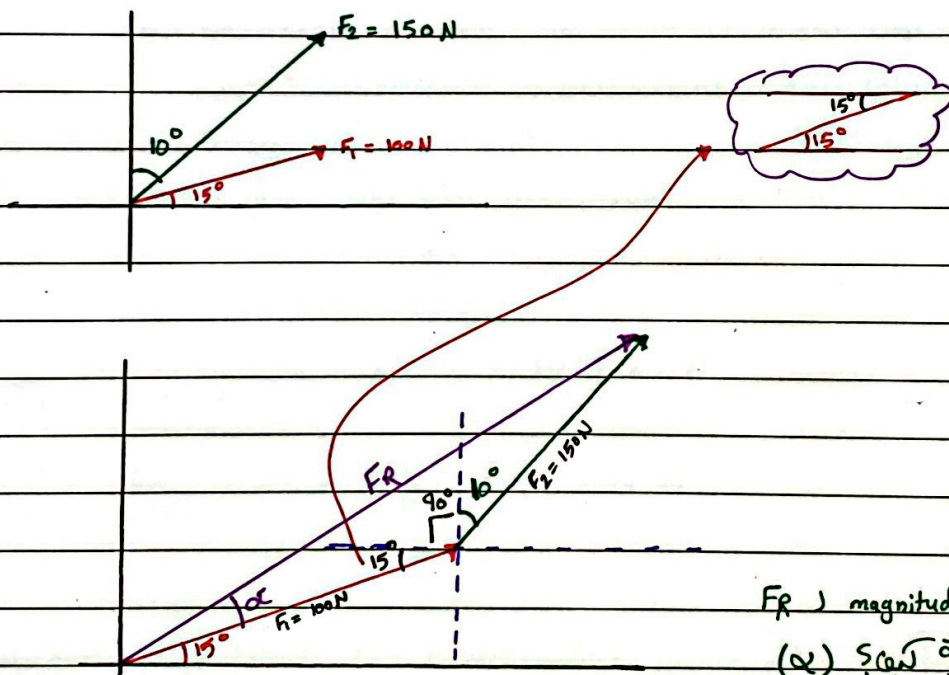 F2 = 150N
10°
F1 = 100N
15°
15°
15°
FR
90°
10°
F2 = 150N
15°
α
F1 = 100N
15°
FR ) magnitud
(α)